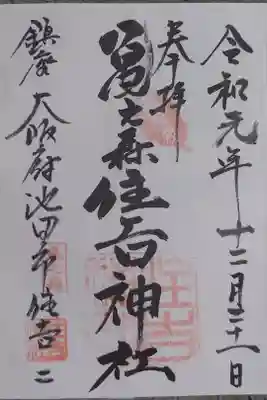 令和元年十二月二十一日
奉拝
亀之森住吉神社
鎮座 大阪府池田市住吉二